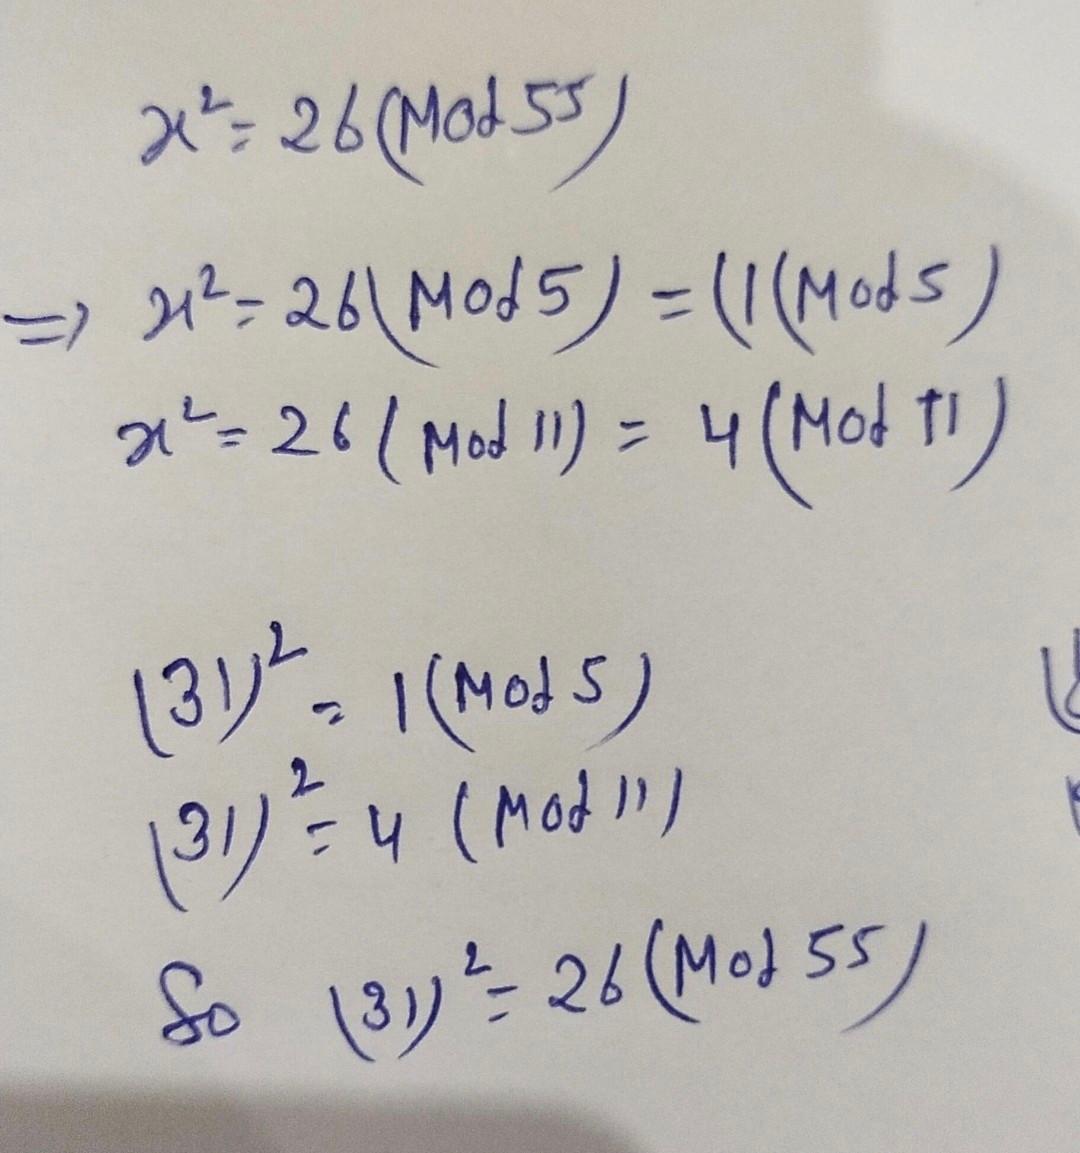 x² = 26 (Mod 55)
=> x² = 26 (Mod 5) = (1 (Mod 5)
x² = 26 ( Mod 11) = 4 (Mod 11)
(31)² = 1 (Mod 5)
(31)² = 4 ( Mod 11)
So (31)² = 26 (Mod 55)